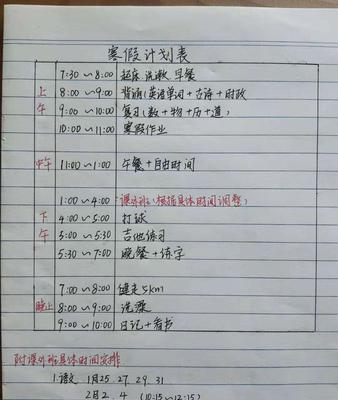 寒假计划表
7:30~8:00 起床 洗漱 早餐
上 8:00~9:00 背诵(英语单词+古诗+时政
午 9:00~10:00 复习(数+物+历+道)
10:00~11:00 寒假作业
中午 11:00~1:00 午餐+自由时间
1:00~4:00 课外班(根据具体时间调整)
下 4:00~5:00 打球
午 5:00~5:30 吉他练习
5:30~7:00 晚餐+练字
7:00~8:00 健走5km
晚上 8:00~9:00 洗澡
9:00~10:00 日记+看书
附课外班具体时间安排
1.语文 1月25.27.29.31
2月2.4 (10:15~12:15)